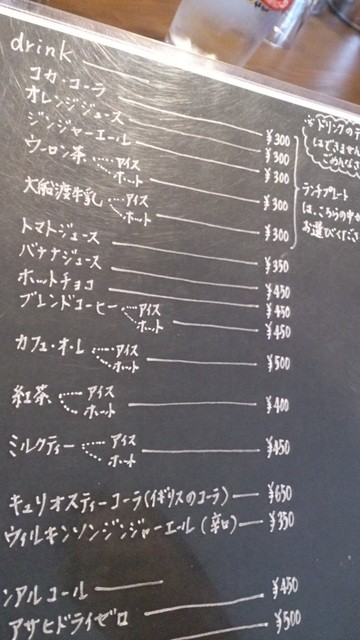 drink
コカ・コーラ ¥300
オレンジジュース ¥300
ジンジャーエール ¥300
ウーロン茶 アイス ホット ¥300
大船渡牛乳 アイス ホット ¥300
トマトジュース ¥350
バナナジュース ¥450
ホットチョコ ¥450
ブレンドコーヒー アイス ホット ¥450
カフェ・オ・レ アイス ホット ¥500
紅茶 アイス ホット ¥400
ミルクティー アイス ホット ¥450
キュリオスティーコーラ(イギリスのコーラ) ¥650
ウィルキンソンジンジャーエール(辛口) ¥350
ンアルコール ¥450
アサヒドライゼロ ¥500
※ドリンクのテ
はできません
ごめんなさ
ランチプレート
は、こちらの中か
お選びくださ